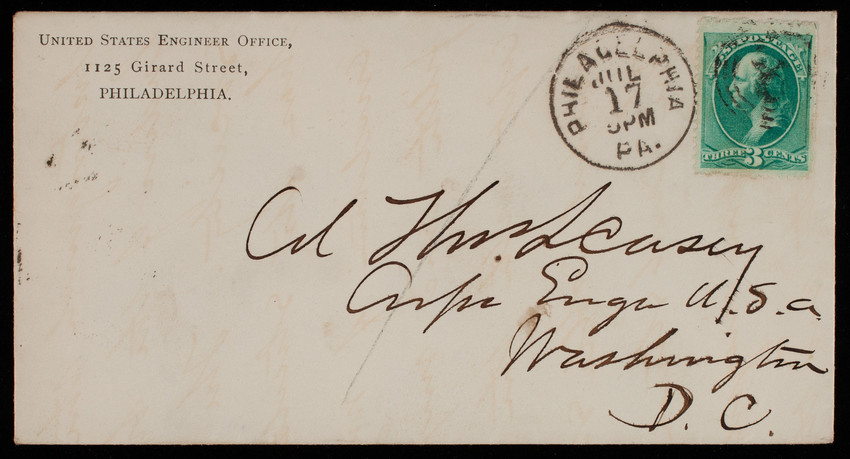 UNITED STATES ENGINEER OFFICE,
1125 Girard Street,
PHILADELPHIA.
PHILADELPHIA
JUL
17
PM
PA.
POSTAGE
THREE 3 CENTS
Col Thos L Casey
Corps Engrs U.S.a.
Washington
D. C.